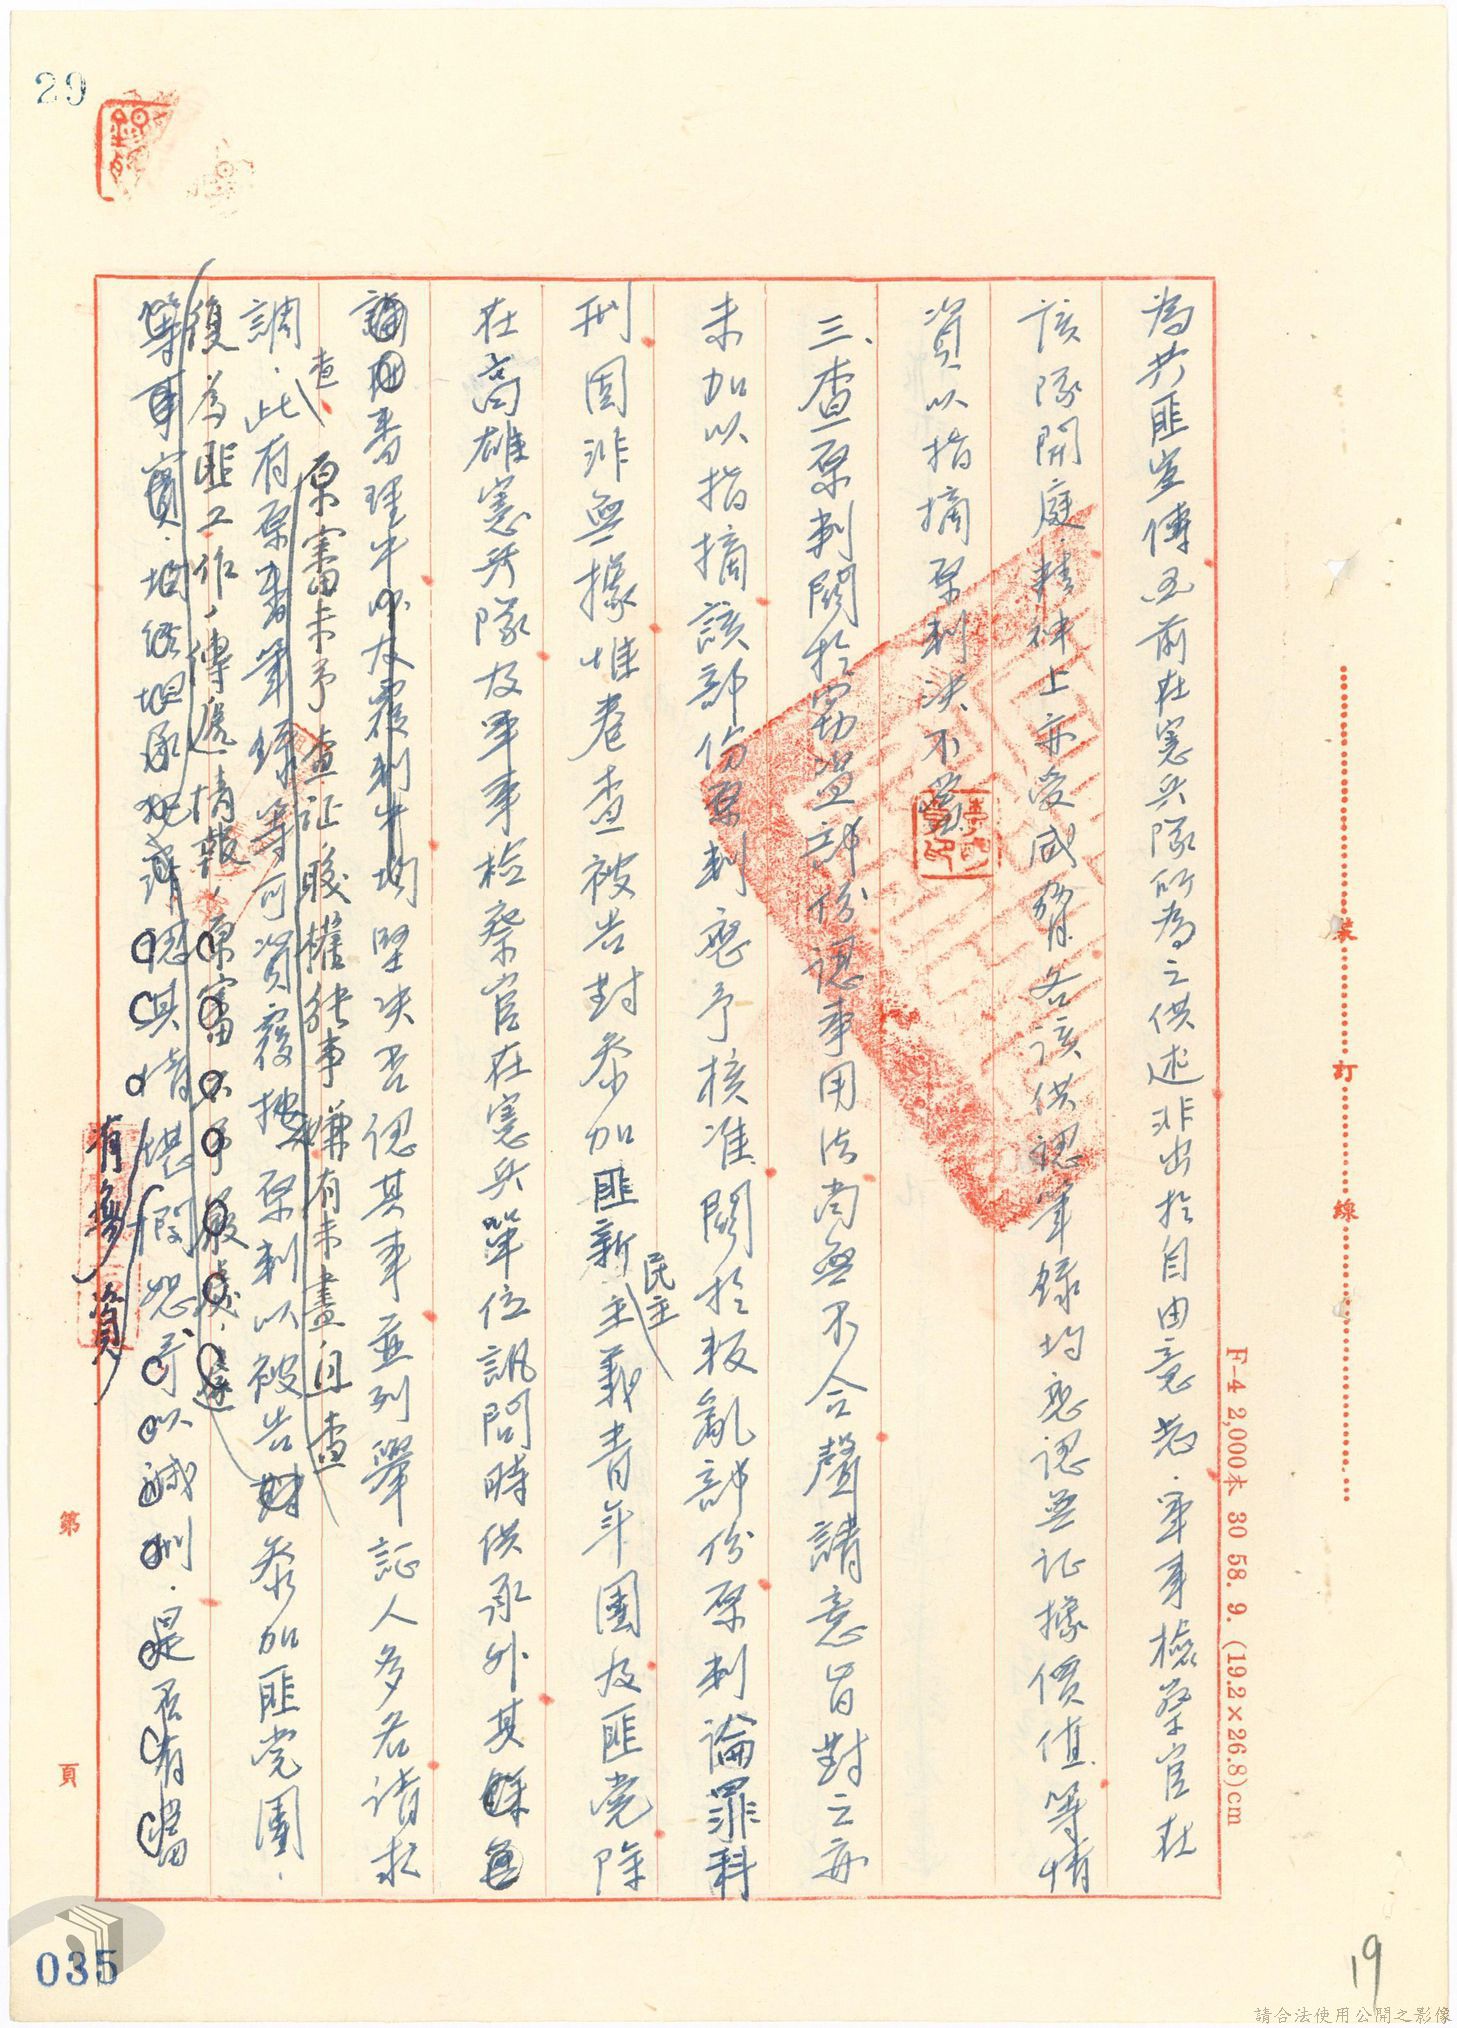 29
為共匪宣傳至前在憲兵隊所為之供述非出於自由意志、軍事檢察官在
該隊開庭、精神上亦受威脅、各該供認筆錄均應認無証據價值、等情
資以指摘原判決不當
三、查原判關於竊盜部份認事用法尚無不合聲請意旨對之亦
未加以指摘該部份原判應予核准、關於叛亂部份原判論罪科
刑固非無據惟卷查被告對參加匪新民主主義青年團及匪党除
在高雄憲兵隊及軍事檢察官在憲兵單位訊問時供承外其餘
審理中及覆判中均堅決否認其事並列舉証人多名請求
查
調、此有原審筆錄等可資覆按原判以被告參加匪党團、
原審未予查証職權能事嫌有未盡且查
復為匪工作、傳遞情報、原審不予嚴懲、遂
等事實、均經坦承犯罪請認其情堪憫恕予以減刑、是否有當
有負
裝
訂
線
F-4 2,000本 30 58. 9. (19.2×26.8)cm
第
頁
035
19
請合法使用公開之影像